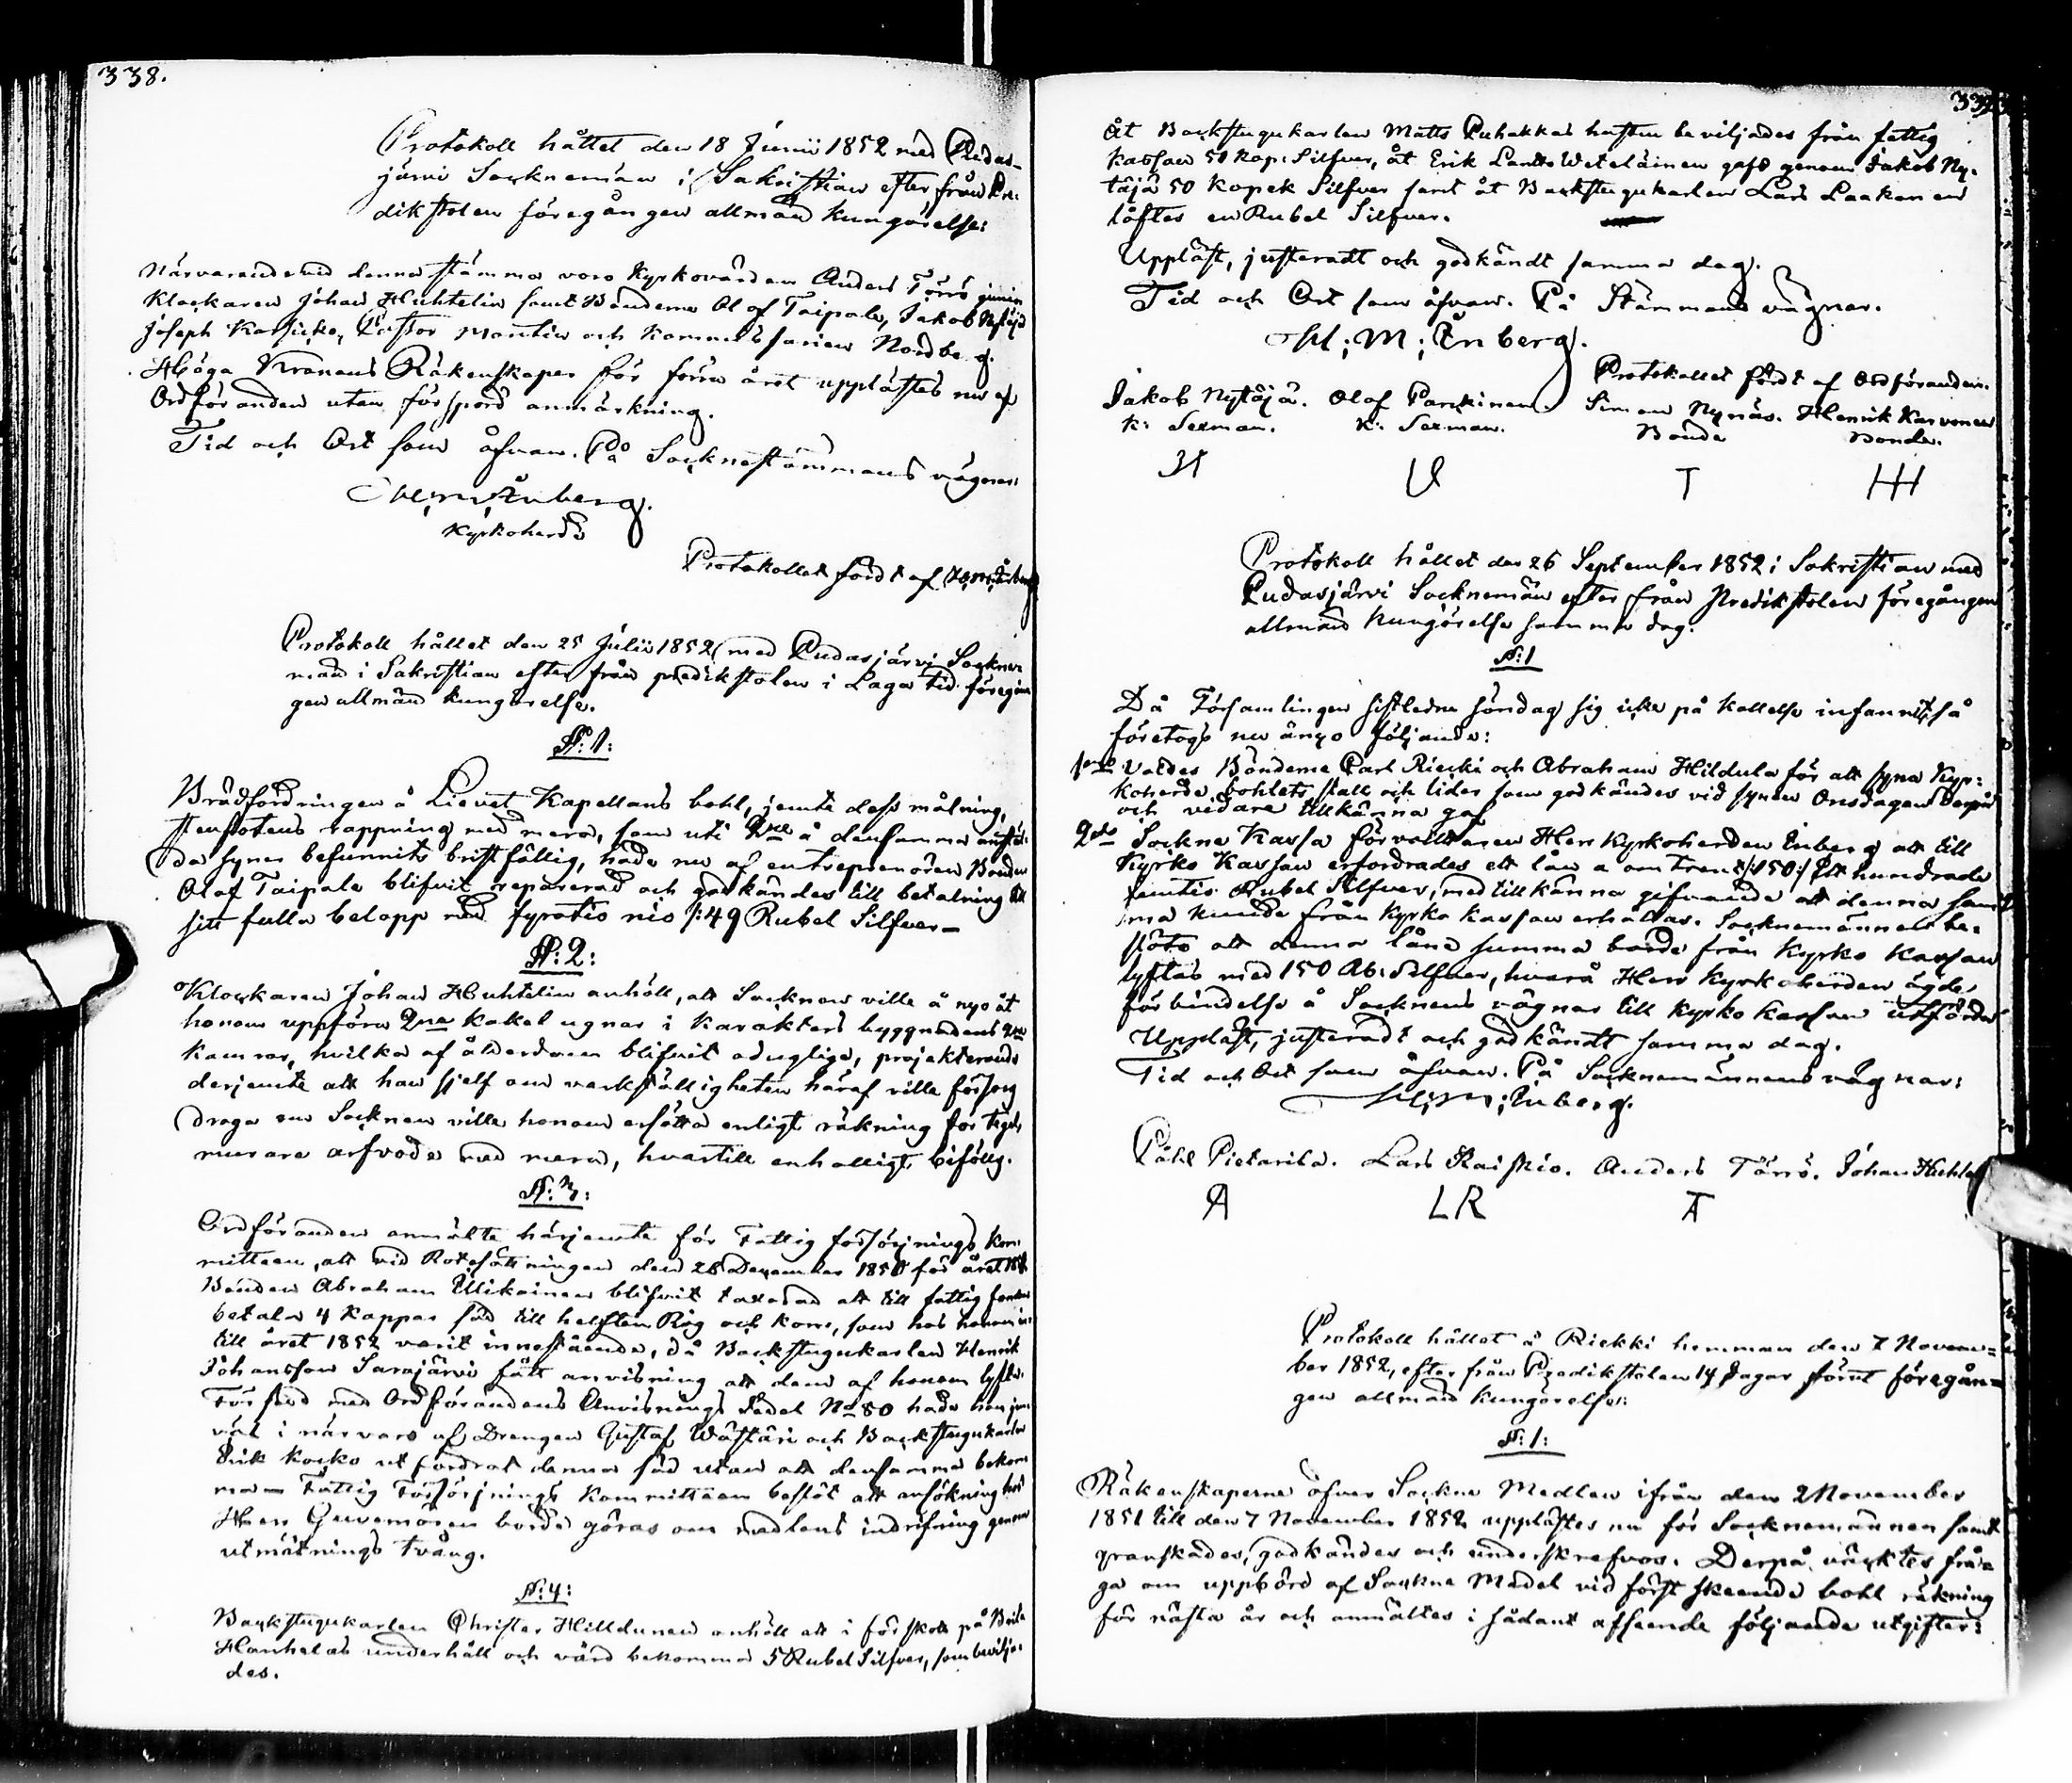 338.
Protokoll hållet den 18 Junii 1852 med Pudas-
järvi Socknemän i Sakristian efter, från Pre-
dikstolen föregången allmän kungörelse:
Närvarande vid denna stämma voro Kyrkovärden Anders Törrö junior
Klockaren Johan Huhtelin samt Bönderne Olof Taipale, Jakob Nytäjä
Joseph Pastor Montin och Kommissarien Nordberg.
Höga Kronans Räkenskaper för förra året upplästes nu af
Ordföranden utan förspord anmärkning.
Tid och Ort som ofvan. På Socknestämmans vägnar:
Enberg.
Kyrkoherde
Protokollet fördt af
Protokoll hållet den 25 Julii 1852 med Pudasjärvi Sockne-
män i Sakristian efter från predikstolen i Laga tid föregån
gen allmän kungörelse.
N:1:
Brädfordringen å Lievet Kapellans bohl, jemte dess målning,
stenfotens rappning med mera, som uti å densamma anstäl-
da syner befunnits bristfällig, hade nu af entreprenören Bonden
Olof Taipale blifvit reparerad och godkändes till betalning till
sitt fulla belopp med fyratio nio /:49 Rubel Silfver—
N:2:
Klockaren Johan Huhtelin anhöll, att Socknen ville å nyo åt
honom uppföra 2ne kakelugnar i Karakters byggnadens 2ne
kamrar, hvilka af ålderdom blifvit oduglige, projekterande
derjemte att han sjelf om verkställigheten häraf ville försorg
draga om Socknen ville honom ersätta enligt räkning för tegel,
murare arfvode med mera, hvartill enhälligt bifölls.
N:3:
Ordföranden anmälte härjemte för Fattig försörjnings Kom-
mitteen, att vid Rotesättningen den 28 December 1850 för året
Bonden Abraham Ulikainen blifvit taxerad att till fattig fonden
betala 4 kappar säd till helften Råg och korn, som hos honom in-
till året 1852 varit innestående, då Backstugukarlen Henrik
Johansson Sarajärvi fått anvisning att dem af honom lyfta.
Försedd med Ordförandens Anvisnings Sedel No 80 hade han jem-
väl i närvaro af Drengen Gustaf Wästäri och Backstugukarlen
Erik Kocko utfordrat denna säd utan att densamma bekom-
ma— Fattig Försörjnings Kommitteen beslöt att ansökning hos
Herr Guvernören borde göras om medlens indrifning genom
utmätnings tvång.
N:4:
Backstugukarlen Christer Hilldunen anhöll att i förskott på
underhåll och vård bekomma 5 Rubel Silfver, som bevilja-
des.
339.
Åt Backstugukarlen Matts Puhakkas hustru beviljades från fattig
kassan 50 kop: Silfver, åt Erik Lantto gafs genom Jakob Ny-
täjä 50 kopek Silfver samt åt Backstugukarlen Lars Laakonen
löftes en Rubel Silfver.
Uppläst, justeradt och godkändt samma dag.
Tid och Ort som ofvan. På Stämmans vägnar.
H; M; Enberg.
Protokollet fördt af Ordföranden.
Jakob Nytäjä. Olof Parckinen. Simon Nynäs. Henrik Karvonen
K: Sexman. K: Sexman. Bonde Bonde.
T
Protokoll hållet den 26 September 1852 i Sakristian med
Pudasjärvi Socknemän efter från Predikstolen föregången
allmän kungörelse samma dag.
N:1
Då Församlingen sistledne söndag sig icke på kallelse infunnit, så
företogs nu ånyo följande:
1mo Valdes Bönderne Carl Riecki och Abraham Hildula för att syna Kyr-
koherde bohlets stall och lider som godkändes vid synen Onsdagen derpå
och vidare tillkänna gaf
2do Sockne Kassa förvaltaren Herr Kyrkoherden Enberg att till
Kyrko Kassan erfordrades ett lån a omtrent /:150:/ Ett hundrade
femtio Rubel Silfver, med tillkänna gifvande att denna sum-
ma kunde från Kyrko kassan erhållas. Socknemännen be-
slöto att denna låne summa borde från Kyrko Kassan
lyftas med 150 Rb: Silfver, hvarå Herr Kyrkoherden ägde
förbindelse å Socknens vägnar till Kyrko kassan utfärda
Uppläst, justeradt och godkändt samma dag.
Tid och Ort som ofvan. På Socknemännens vägnar:
H; M; Enberg.
Påhl Pietarila. Lars Raiskio. Anders Törrö. Johan Huhtel
LR
Protokoll hållet å Riekki hemman den 7 Novem-
ber 1852, efter från Predikstolen 14 dagar förut föregån-
gen allmän kungörelse:
N:1:
Räkenskaperne öfver Sockne Medlen ifrån den 2 November
1851 till den 7 November 1852 upplästes nu för Socknemännen samt
granskades, godkändes och underskrefvos. Derpå väcktes frå-
ga om uppbörd af Sockne Medel vid först skeende bohl räkning
för nästa år och anmältes i sådant afseende följande utgifter: